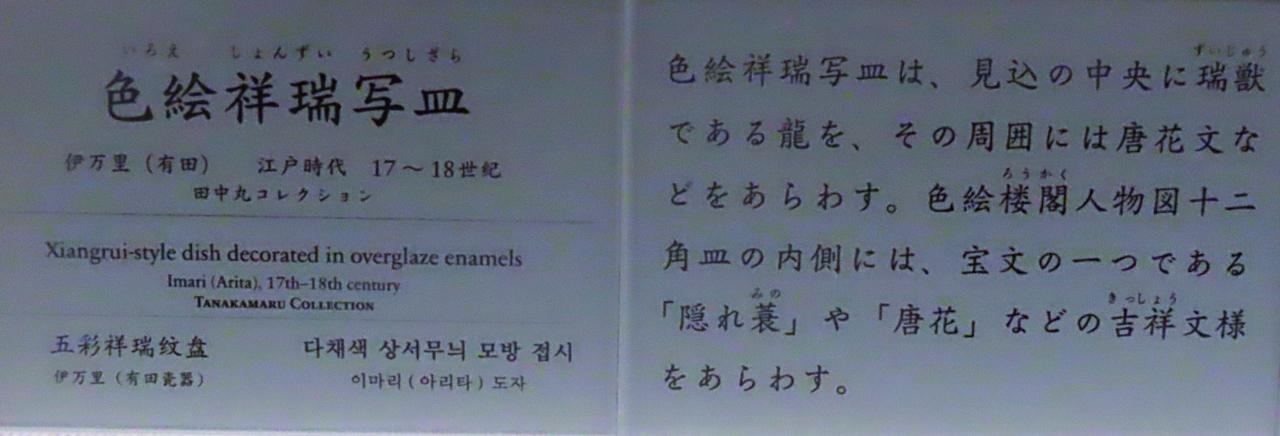 いろえ しょんずい うつしざら
色絵祥瑞写皿
伊万里（有田） 江戸時代 17～18世紀
田中丸コレクション
Xiangrui-style dish decorated in overglaze enamels
Imari (Arita), 17th–18th century
TANAKAMARU COLLECTION
五彩祥瑞纹盘
伊万里（有田瓷器）
다채색 상서무늬 모방 접시
이마리 ( 아리타 ) 도자
ずいじゅう
色絵祥瑞写皿は、見込の中央に瑞獣
である龍を、その周囲には唐花文な
ろうかく
どをあらわす。色絵楼閣人物図十二
角皿の内側には、宝文の一つである
みの きっしょう
「隠れ蓑」や「唐花」などの吉祥文様
をあらわす。